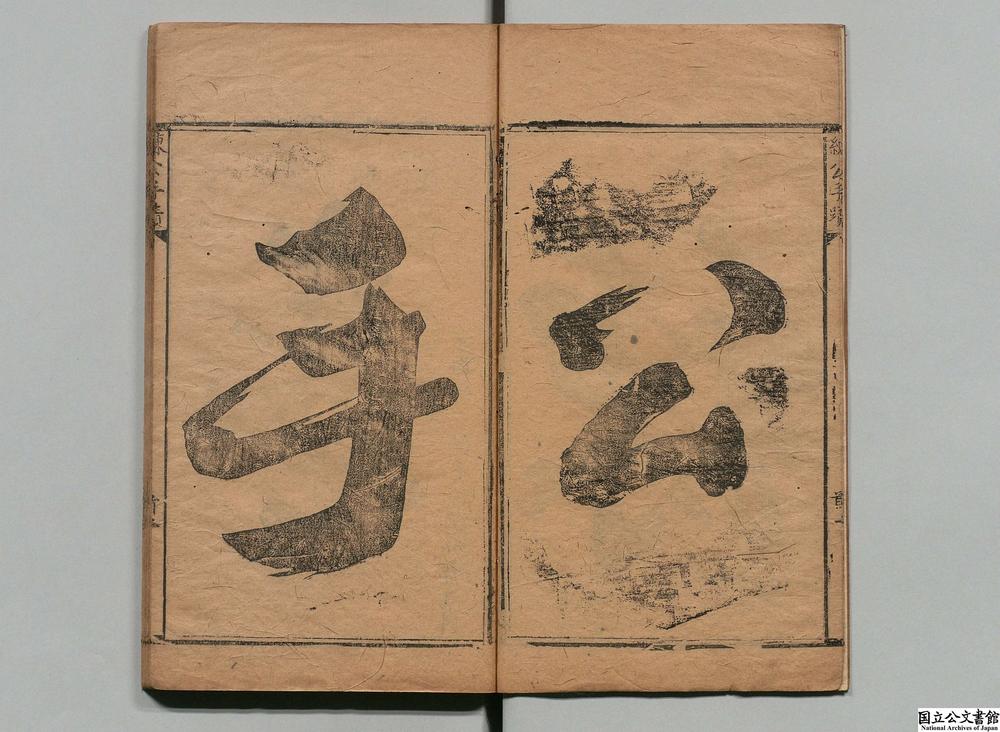 公
公手蹟
首一
手
公手蹟
国立公文書館
National Archives of Japan